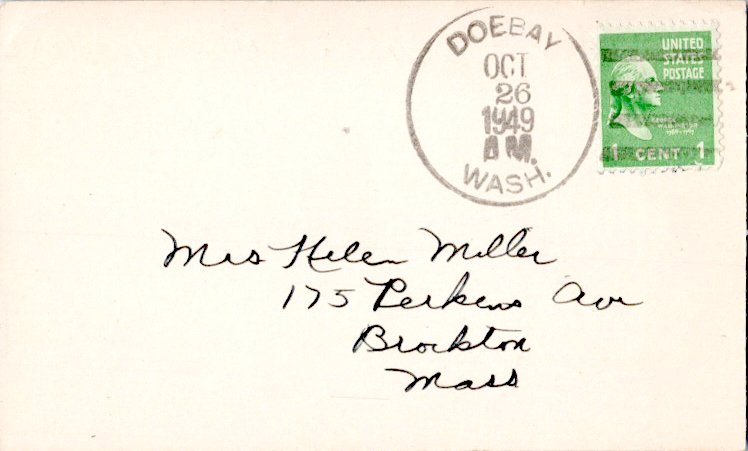 DOEBAY
OCT
26
1949
A M.
WASH.
UNITED
STATES
POSTAGE
1 CENT 1
Mrs Helen Miller
175 Perkins Ave
Brockton
Mass